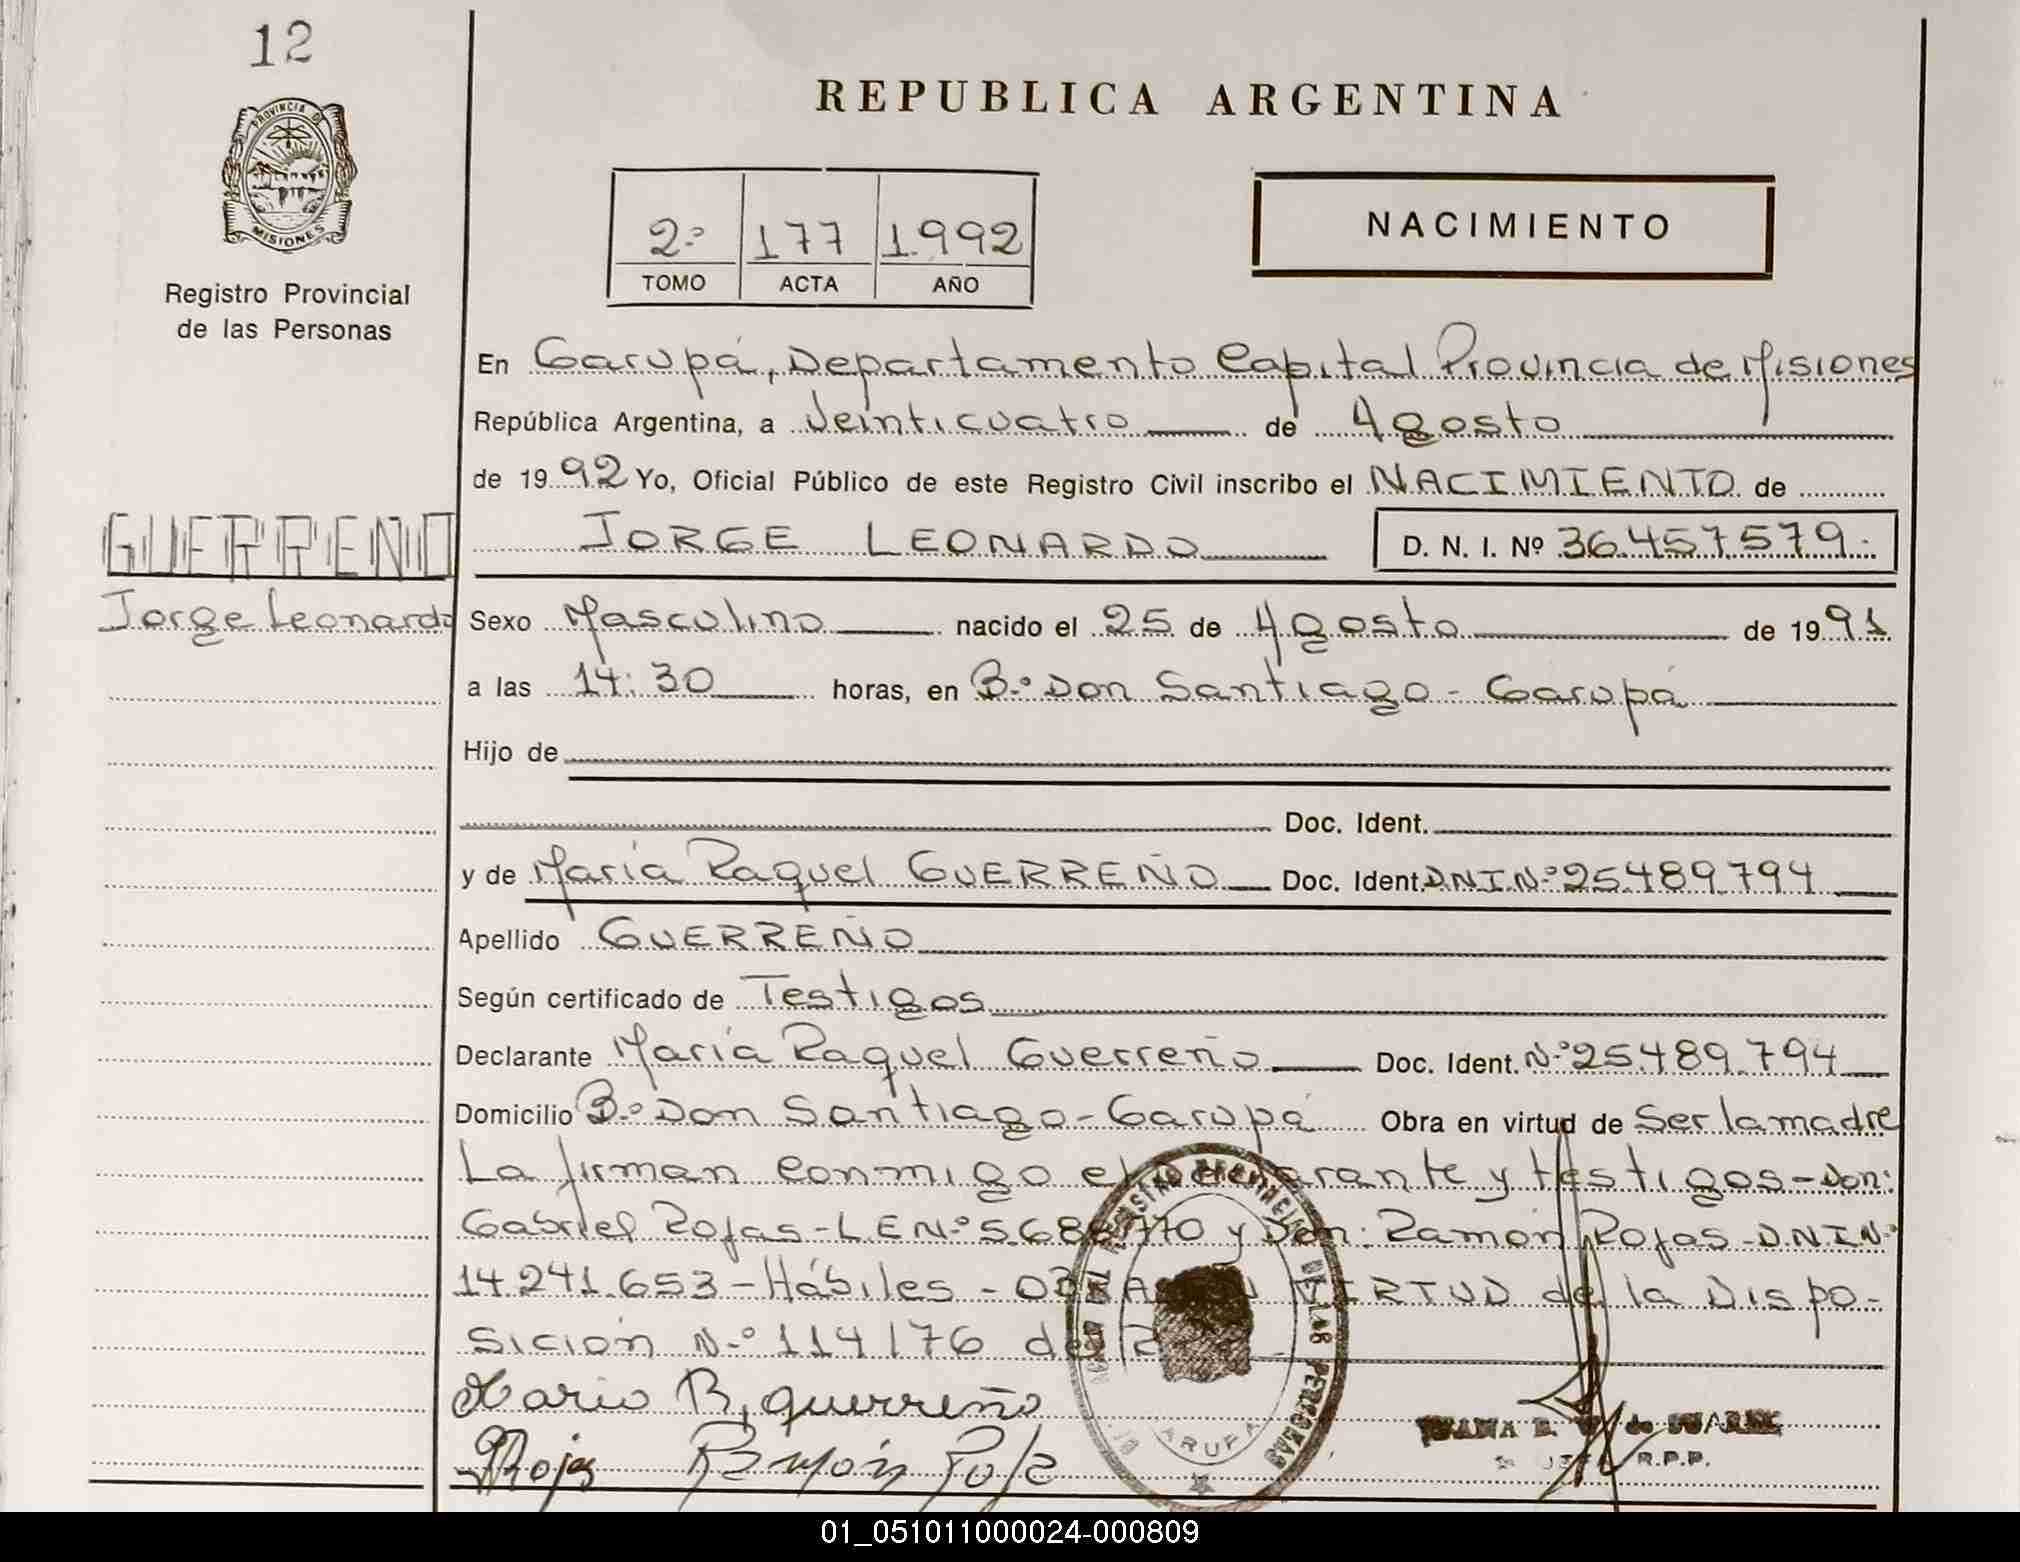 12
REPUBLICA ARGENTINA
PROVINCIA DE
MISIONES
Registro Provincial
de las Personas
2º 177 1992
TOMO ACTA AÑO
NACIMIENTO
En Garupá, Departamento Capital Provincia de Misiones
República Argentina, a Veinticuatro de Agosto
de 1992 Yo, Oficial Público de este Registro Civil inscribo el NACIMIENTO de
GUERREÑO
JORGE LEONARDO D. N. I. Nº 36.457.579.
Jorge Leonardo
Sexo Masculino nacido el 25 de Agosto de 1991
a las 14:30 horas, en Bº Don Santiago - Garupá
Hijo de
Doc. Ident.
y de María Raquel GUERREÑO Doc. Ident. DNI Nº 25.489.794
Apellido GUERREÑO
Según certificado de Testigos
Declarante María Raquel Guerreño Doc. Ident. Nº 25.489.794
Domicilio Bº Don Santiago - Garupá Obra en virtud de Ser la madre
La firman conmigo el declarante y testigos - Don:
Gabriel Rojas - L.E Nº 5.688.770 y Don: Ramón Rojas - D.N.I Nº
14.241.653 - Hábiles - OBRA EN VIRTUD de la Dispo-
sición Nº 114/76 del
María R, guerreño
Rojas Ramón Rojas
REGISTRO PROVINCIAL DE LAS PERSONAS
GARUPA
JUANA de SUAREZ
JEFA R.P.P.
01_051011000024-000809